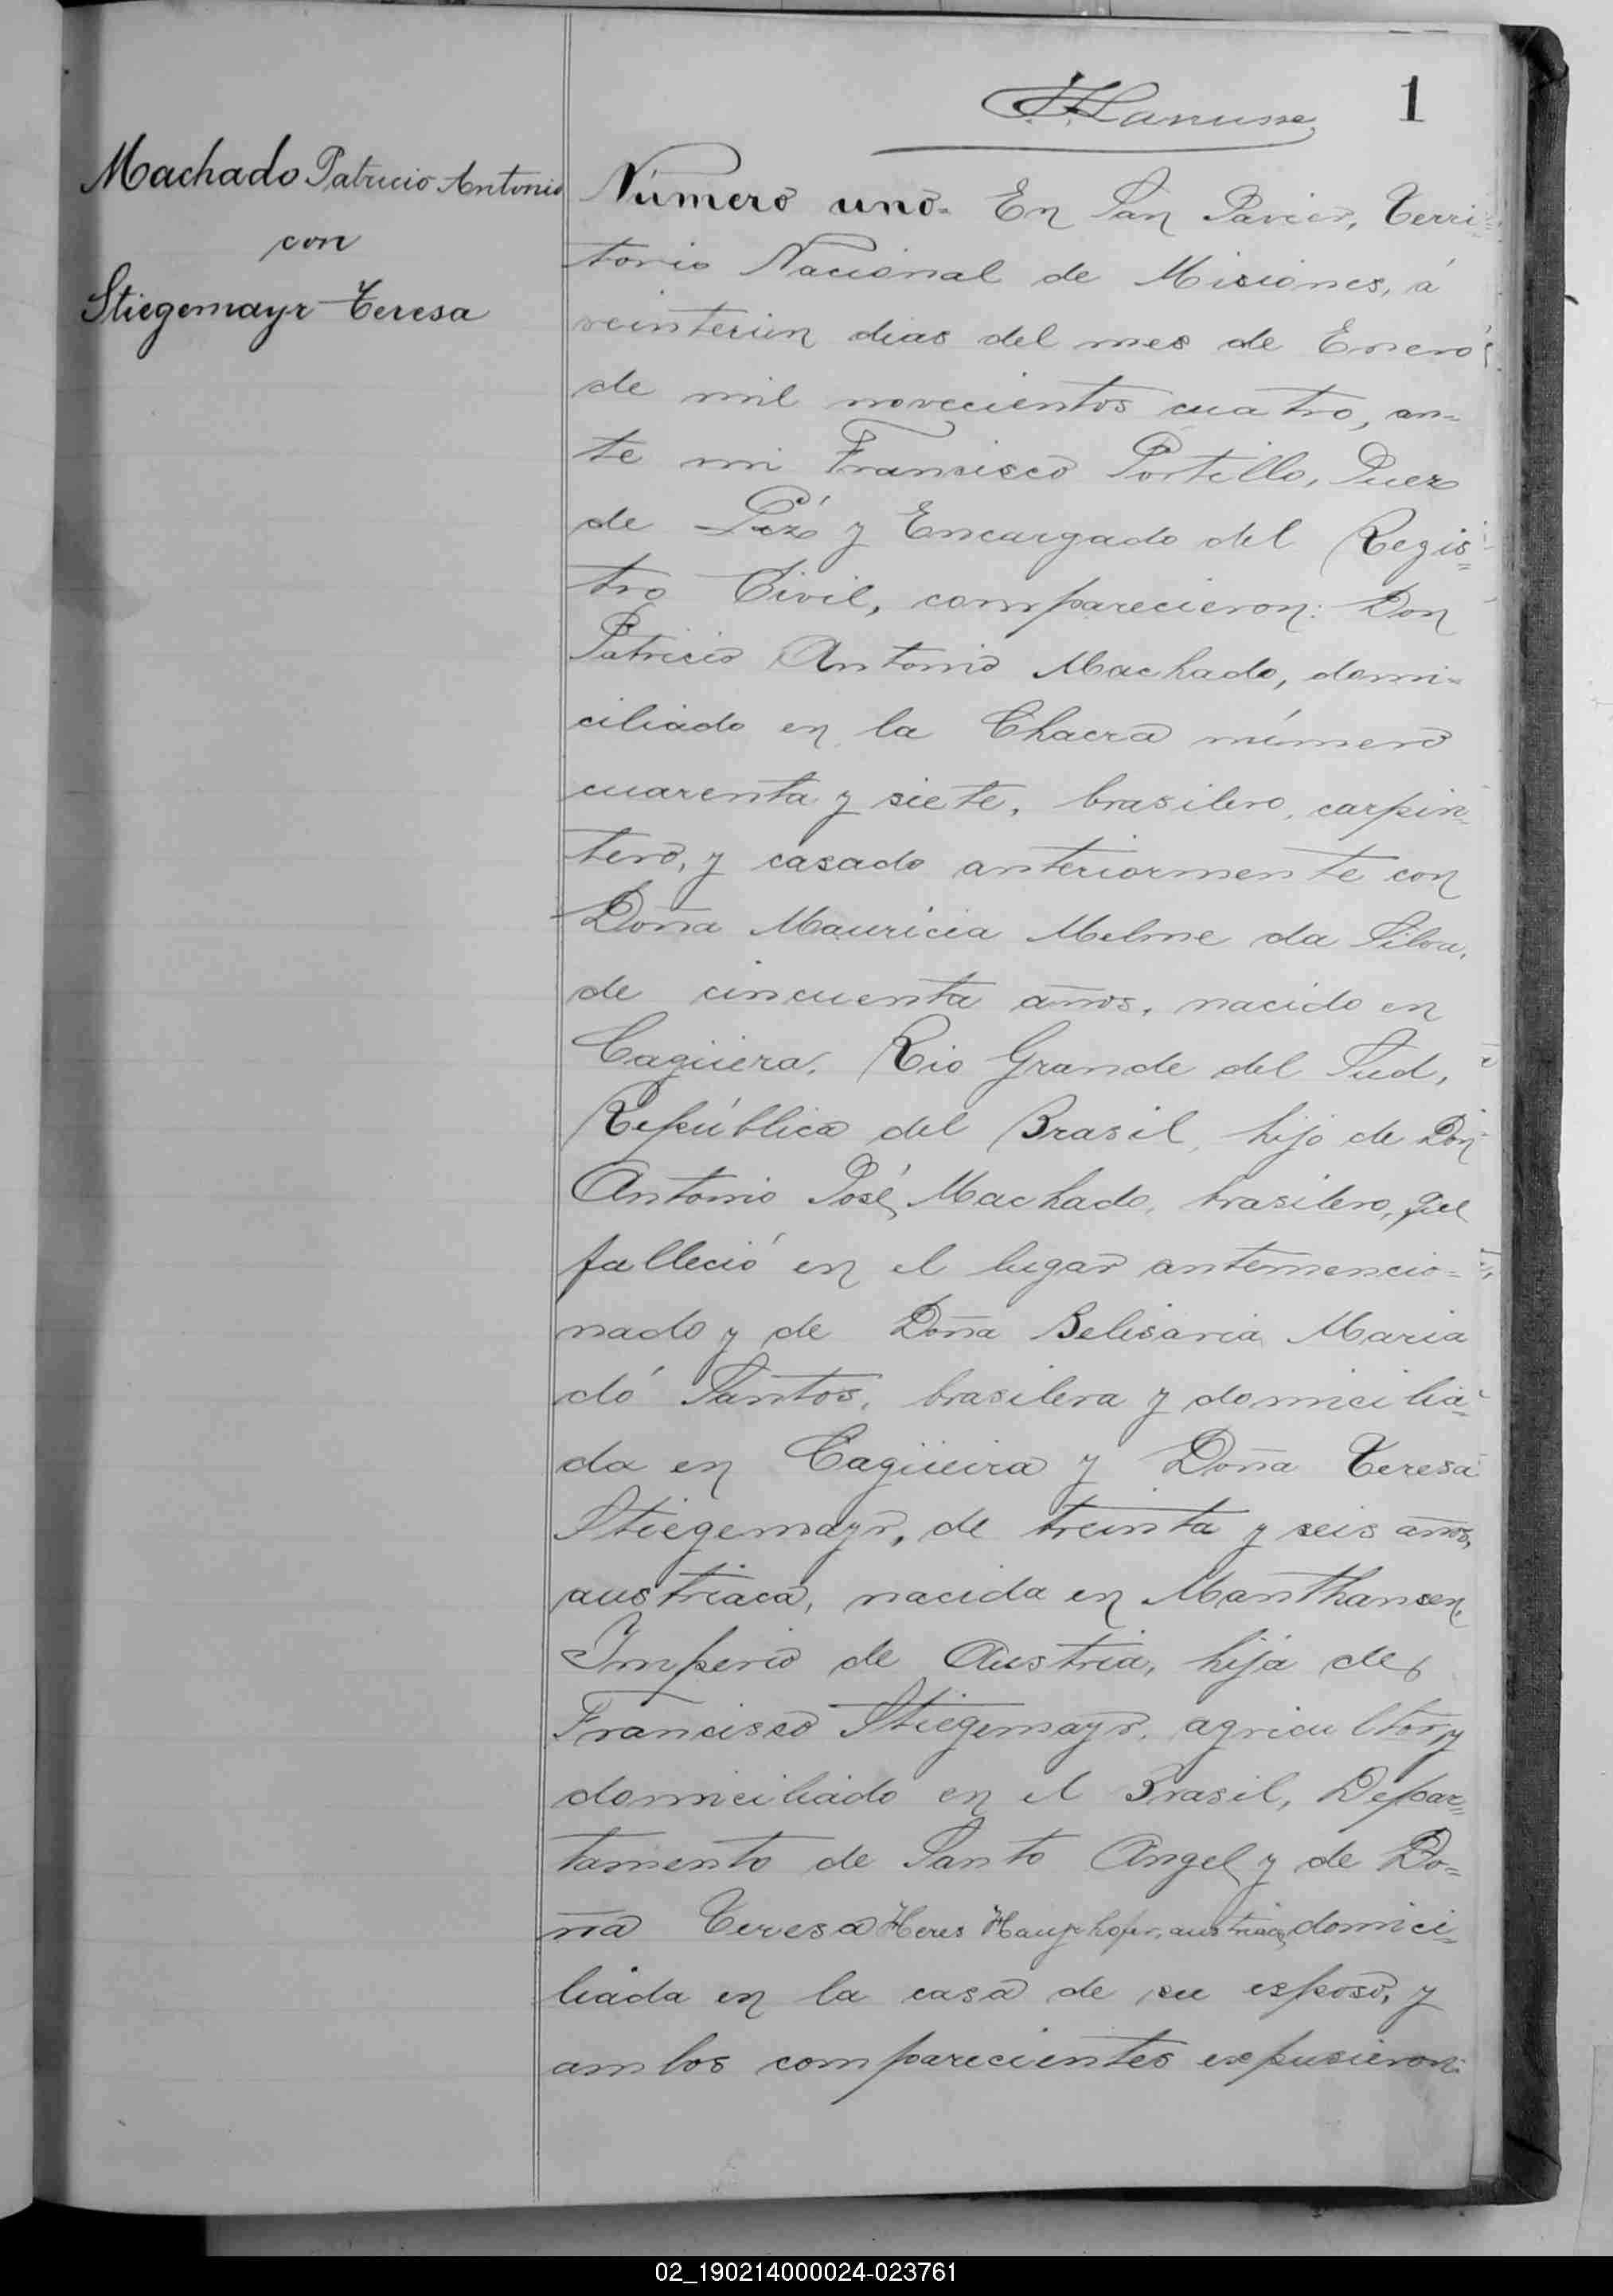 J. J. Lanusse
1
Machado Patricio Antonio
con
Stiegemayr Teresa
Número uno. En San Javier, Terri-
torio Nacional de Misiones, á
veintiun dias del mes de Enero
de mil novecientos cuatro, an-
te mi Francisco Portillo, Juez
de Paz y Encargado del Regis-
tro Civil, comparecieron: Don
Patricio Antonio Machado, domi-
ciliado en la Chacra número
cuarenta y siete, brasilero, carpin-
tero, y casado anteriormente con
Doña Mauricia Melme da Silva,
de cincuenta años, nacido en
Cagüiera, Rio Grande del Sud,
República del Brasil, hijo de Don
Antonio José Machado, brasilero, que
falleció en el lugar antemencio-
nado y de Doña Belisaria Maria
dó Santos, brasilera y domicilia-
da en Cagüieira y Doña Teresa
Stiegemayr, de treinta y seis años,
austriaca, nacida en Manthansen,
Imperio de Austria, hija de
Francisco Stiegemayr, agricultor y
domiciliado en el Brasil, Depar-
tamento de Santo Angel y de Do-
ña Teresa Heres austriaca, domici-
liada en la casa de su esposo, y
ambos comparecientes expusieron:
02_190214000024-023761